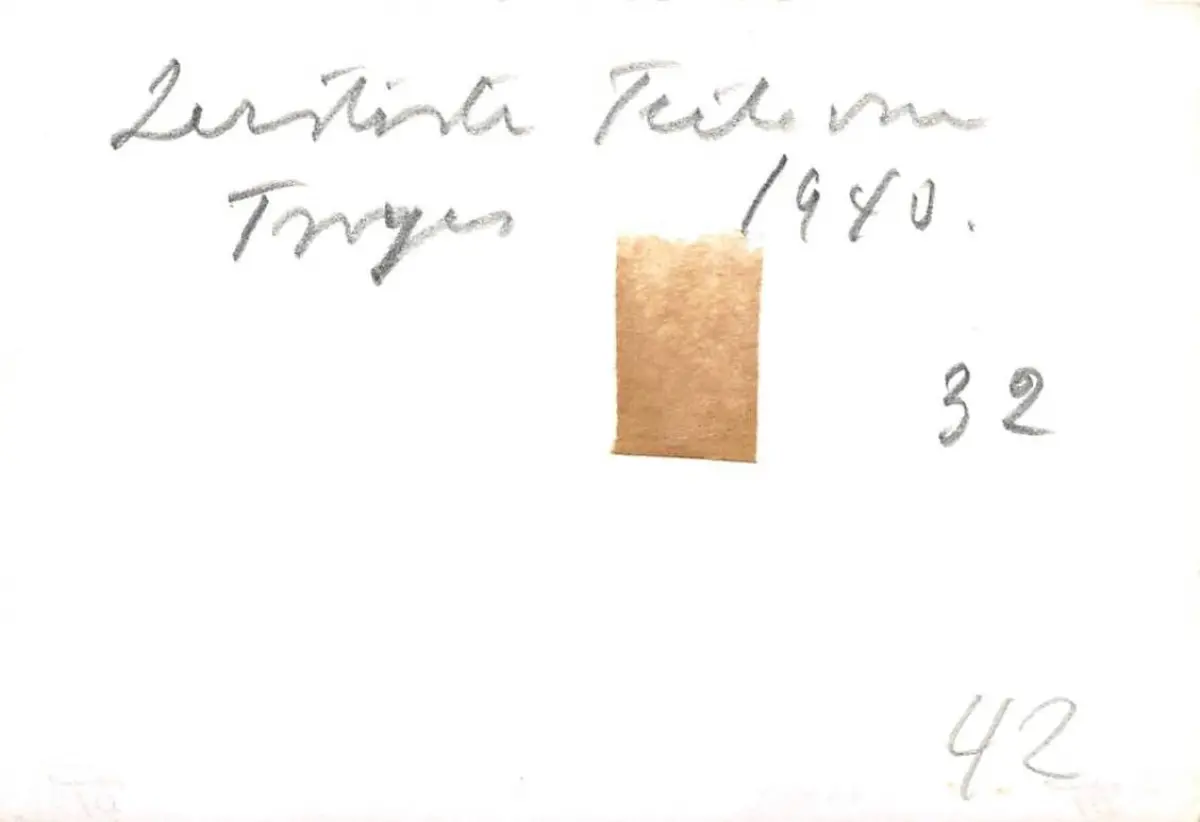 Zerstörte Teile von
Troyes 1940.
32
42